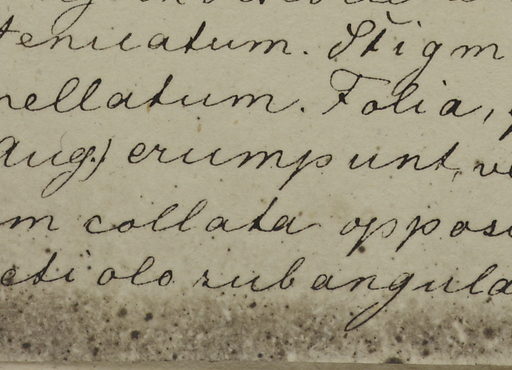 tenuatum. Stigm
nellatum. Folia,
Aug.) erumpunt, ve
m collata opposi
cti olo subangula